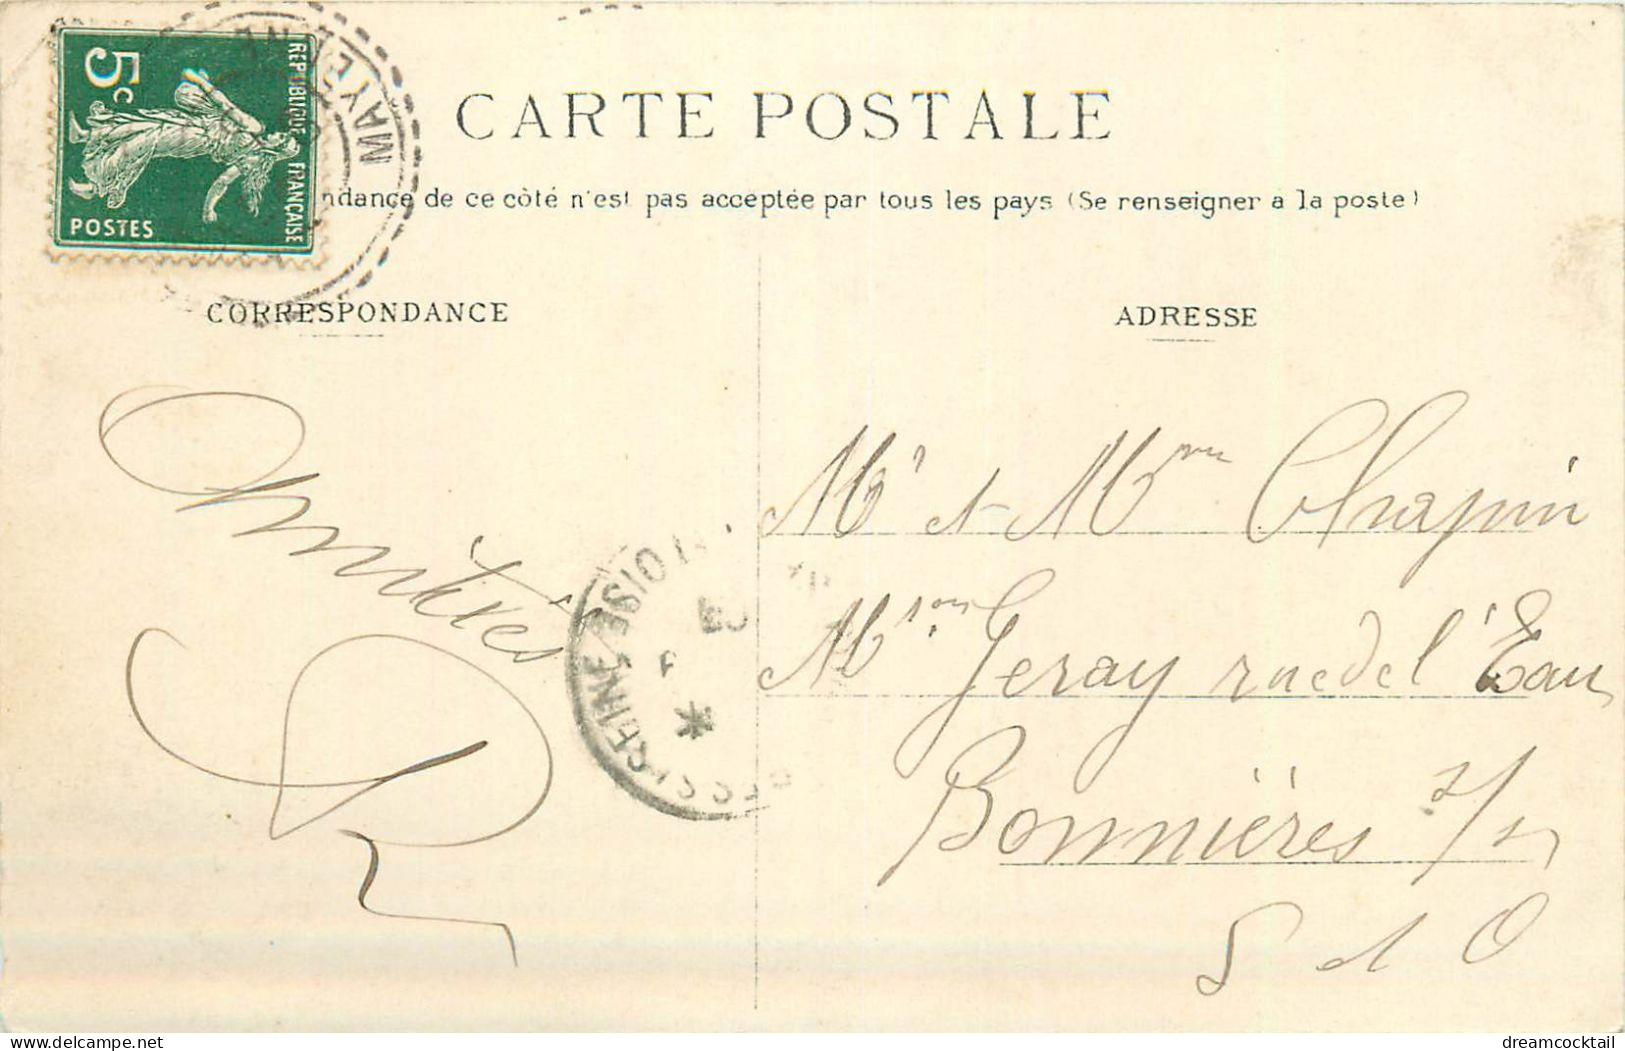 CARTE POSTALE
ndance de ce côté n'est pas acceptée par tous les pays (Se renseigner à la poste)
5c
REPUBLIQUE FRANÇAISE
POSTES
MAYENNE
CORRESPONDANCE
ADRESSE
Amitiés
Mr et Mme Chapin
Mson Geray rue de l'Eau
Bonnières s/sn
S et O
SEINE ET OISE
delcampe.net
dreamcocktail